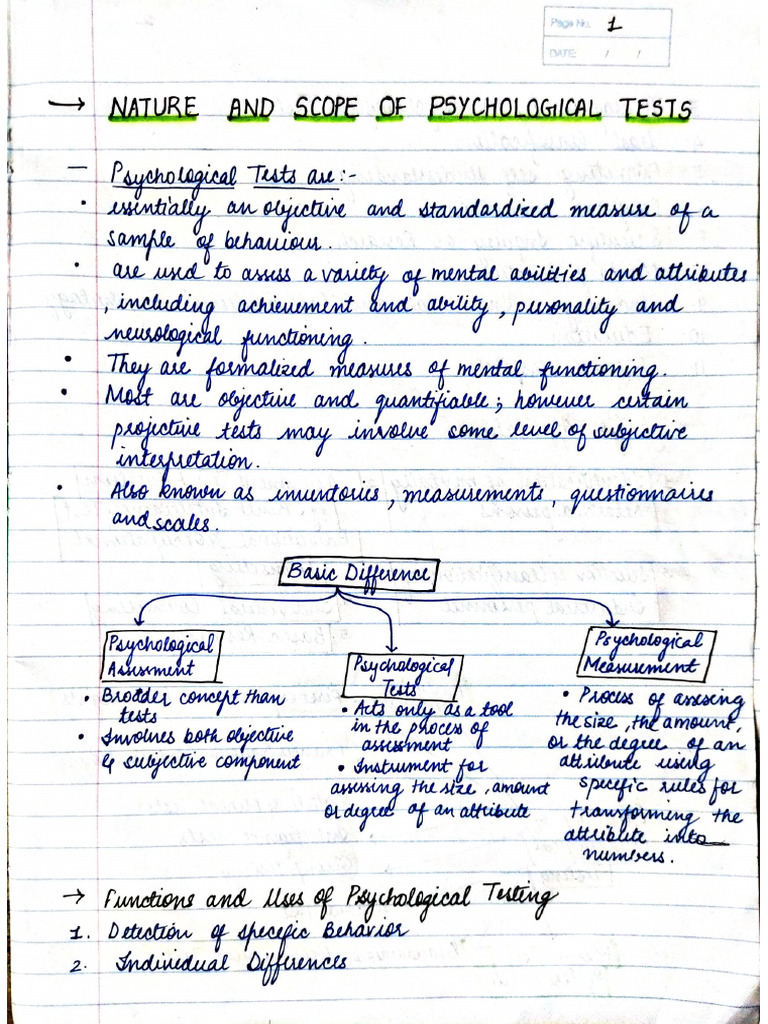 Page No. 1
DATE: / /
→ NATURE AND SCOPE OF PSYCHOLOGICAL TESTS
— Psychological Tests are:-
• essentially an objective and standardized measure of a
sample of behaviour.
• are used to assess a variety of mental abilities and attributes
, including achievement and ability, personality and
neurological functioning.
• They are formalized measures of mental functioning.
• Most are objective and quantifiable; however certain
projective tests may involve some level of subjective
interpretation.
• Also known as inventories, measurements, questionnaires
and scales.
Basic Difference
Psychological
Assessment
• Broader concept than
tests
• Involves both objective
& subjective component
Psychological
Tests
• Acts only as a tool
in the process of
assessment
• Instrument for
assessing the size, amount
or degree of an attribute
Psychological
Measurement
• Process of assessing
the size, the amount,
or the degree of an
attribute using
specific rules for
transforming the
attribute into
numbers.
→ Functions and Uses of Psychological Testing
1. Detection of specific Behavior
2. Individual Differences